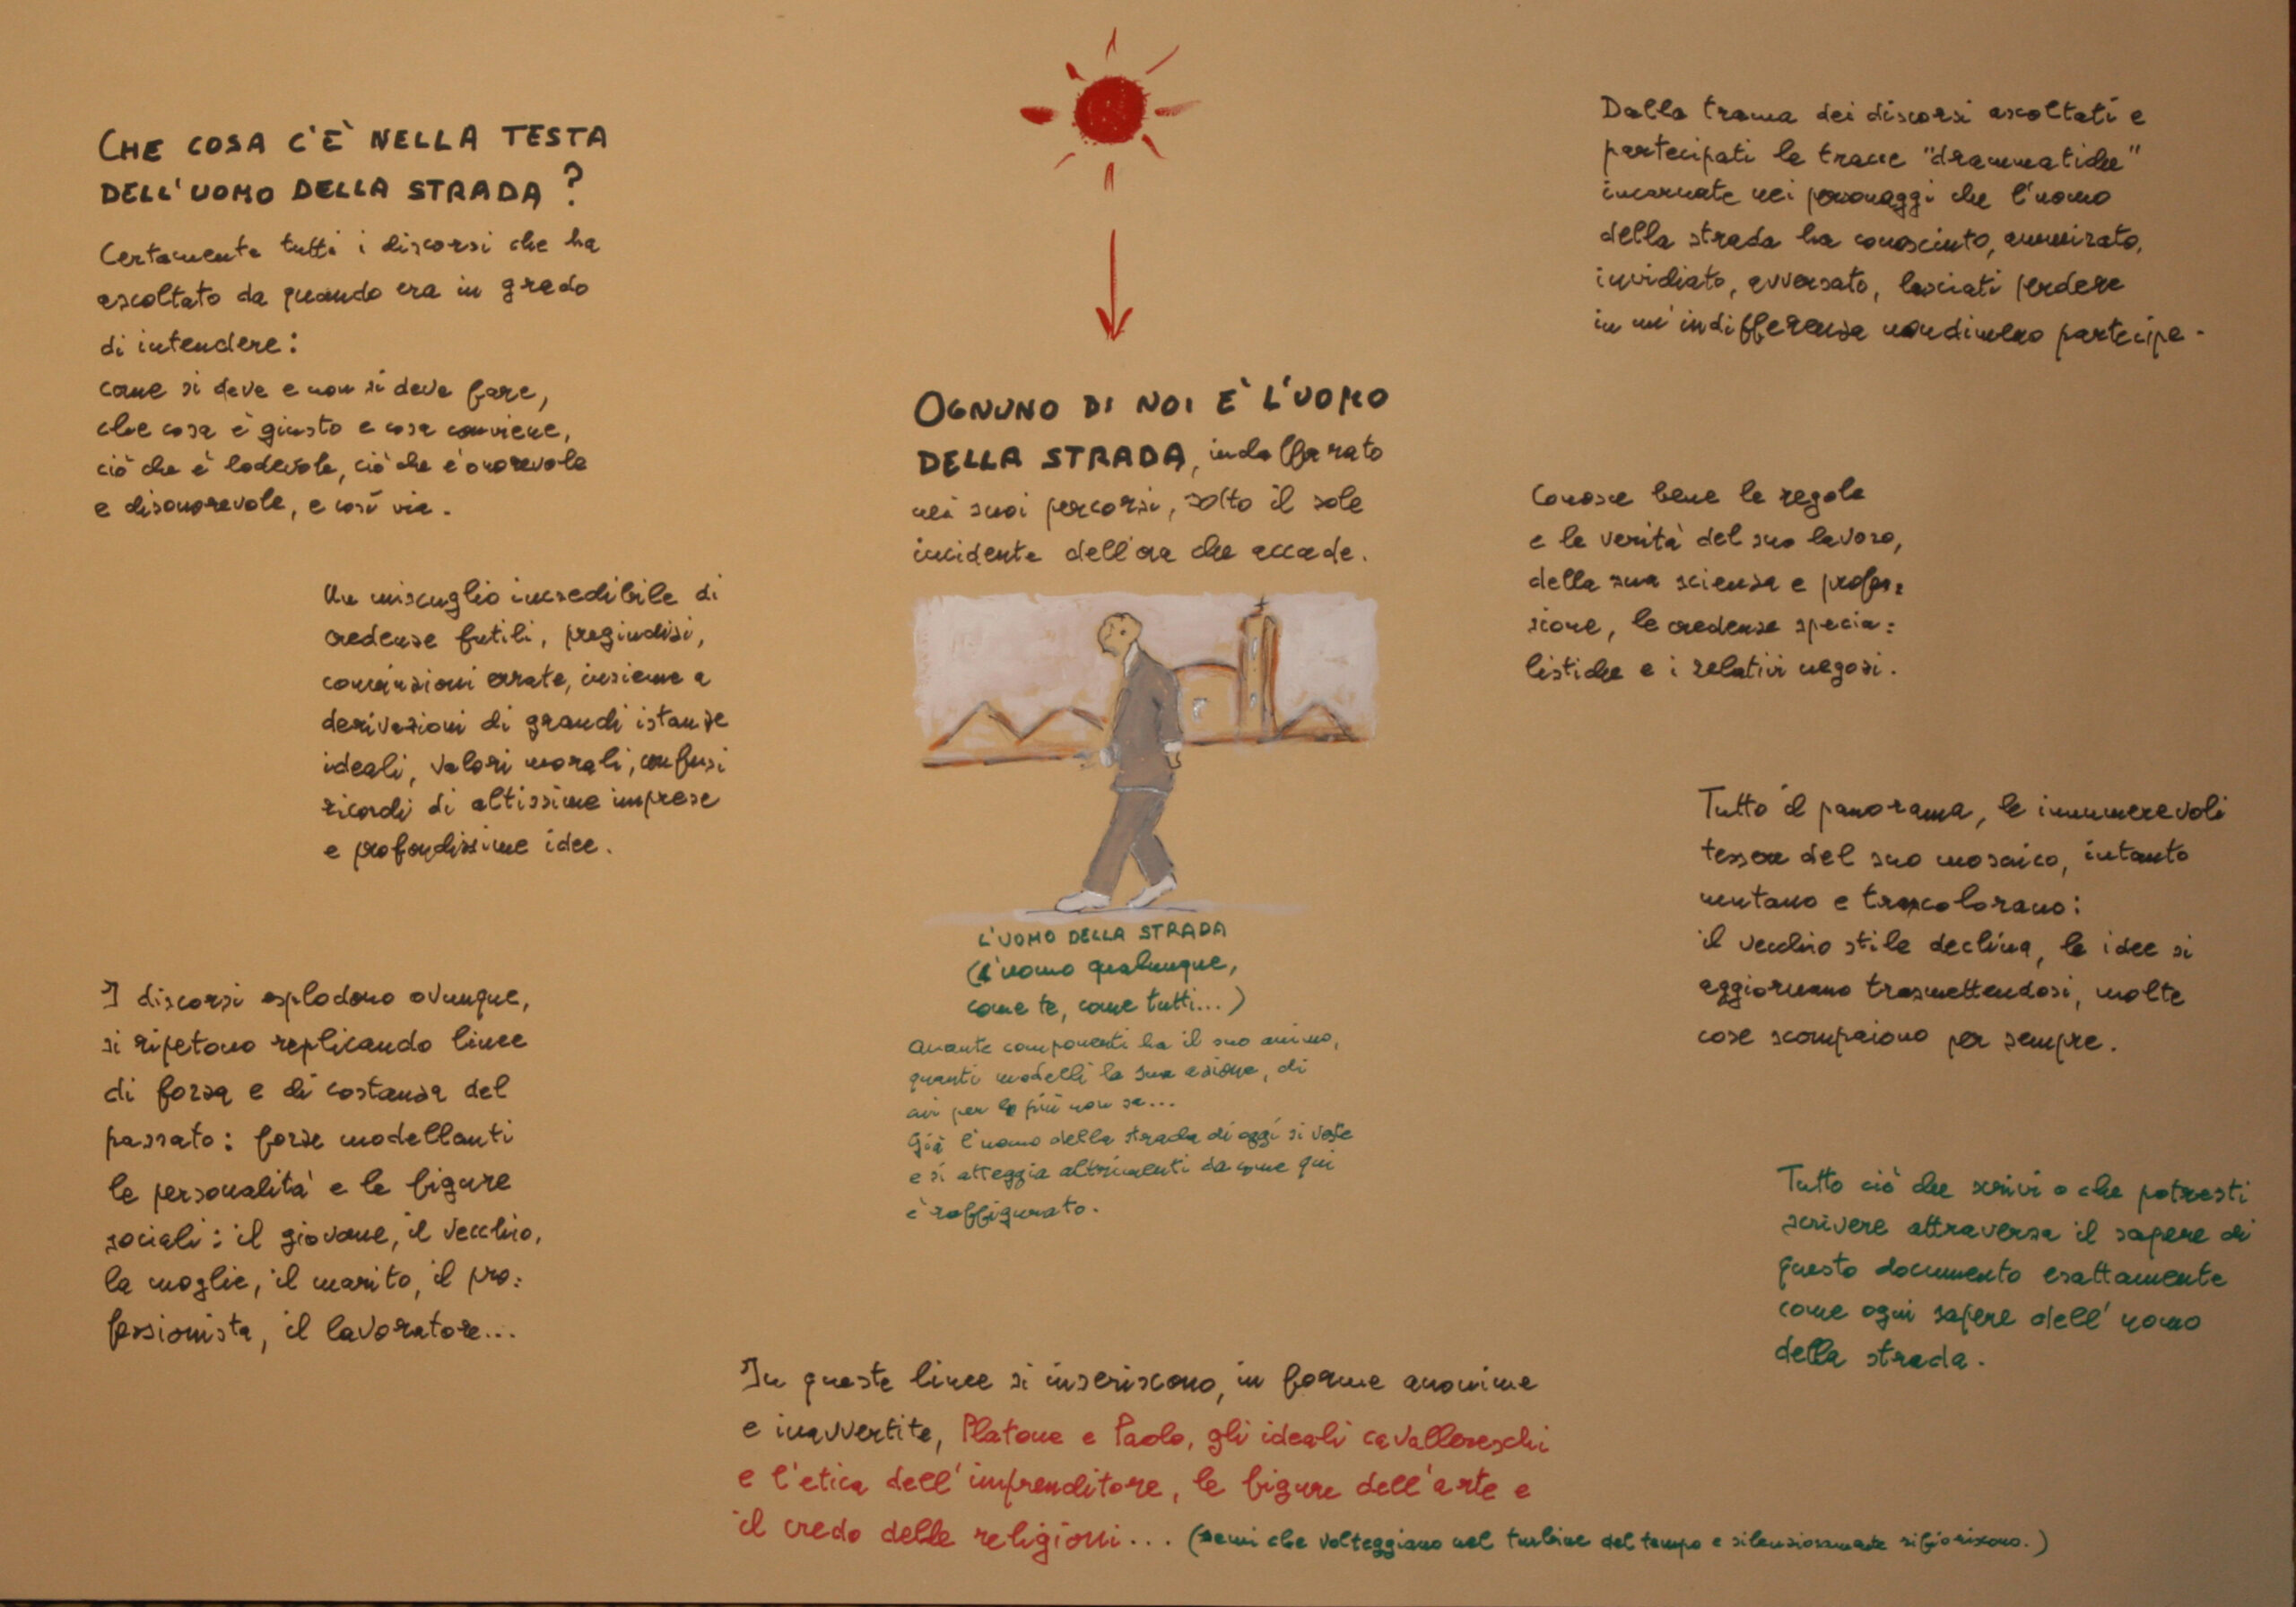 CHE COSA C'È NELLA TESTA
DELL'UOMO DELLA STRADA?
Certamente tutti i discorsi che ha
ascoltato da quando era in grado
di intendere:
come si deve e non si deve fare,
che cosa è giusto e cosa conviene,
ciò che è lodevole, ciò che è onorevole
e disonorevole, e così via.
Un miscuglio incredibile di
credenze futili, pregiudizi,
convinzioni errate, insieme a
derivazioni di grandi istanze
ideali, valori morali, confusi
ricordi di altissime imprese
e profondissime idee.
I discorsi esplodono ovunque,
si ripetono replicando linee
di forza e di costanza del
passato: forze modellanti
le personalità e le figure
sociali: il giovane, il vecchio,
la moglie, il marito, il pro=
fessionista, il lavoratore...
OGNUNO DI NOI È L'UOMO
DELLA STRADA, indaffarato
nei suoi percorsi, sotto il sole
incidente dell'ora che accade.
L'UOMO DELLA STRADA
(l'uomo qualunque,
come te, come tutti...)
Quante componenti ha il suo animo,
quanti modelli la sua azione, di
cui per lo più non sa...
Già l'uomo della strada di oggi si veste
e si atteggia altrimenti da come qui
è raffigurato.
In queste linee si inseriscono, in forme anonime
e inavvertite, Platone e Paolo, gli ideali cavallereschi
e l'etica dell'imprenditore, le figure dell'arte e
il credo delle religioni... (semi che volteggiano nel turbine del tempo e silenziosamente rifioriscono.)
Dalla trama dei discorsi ascoltati e
partecipati le tracce "drammatiche"
incarnate nei personaggi che l'uomo
della strada ha conosciuto, ammirato,
invidiato, avversato, lasciati perdere
in un'indifferenza nondimeno partecipe.
Conosce bene le regole
e le verità del suo lavoro,
della sua scienza e profes=
sione, le credenze specia=
listiche e i relativi negozi.
Tutto il panorama, le innumerevoli
tessere del suo mosaico, intanto
mutano e trascolorano:
il vecchio stile declina, le idee si
aggiornano trasmettendosi, molte
cose scompaiono per sempre.
Tutto ciò che scrivi o che potresti
scrivere attraversa il sapere di
questo documento esattamente
come ogni sapere dell'uomo
della strada.